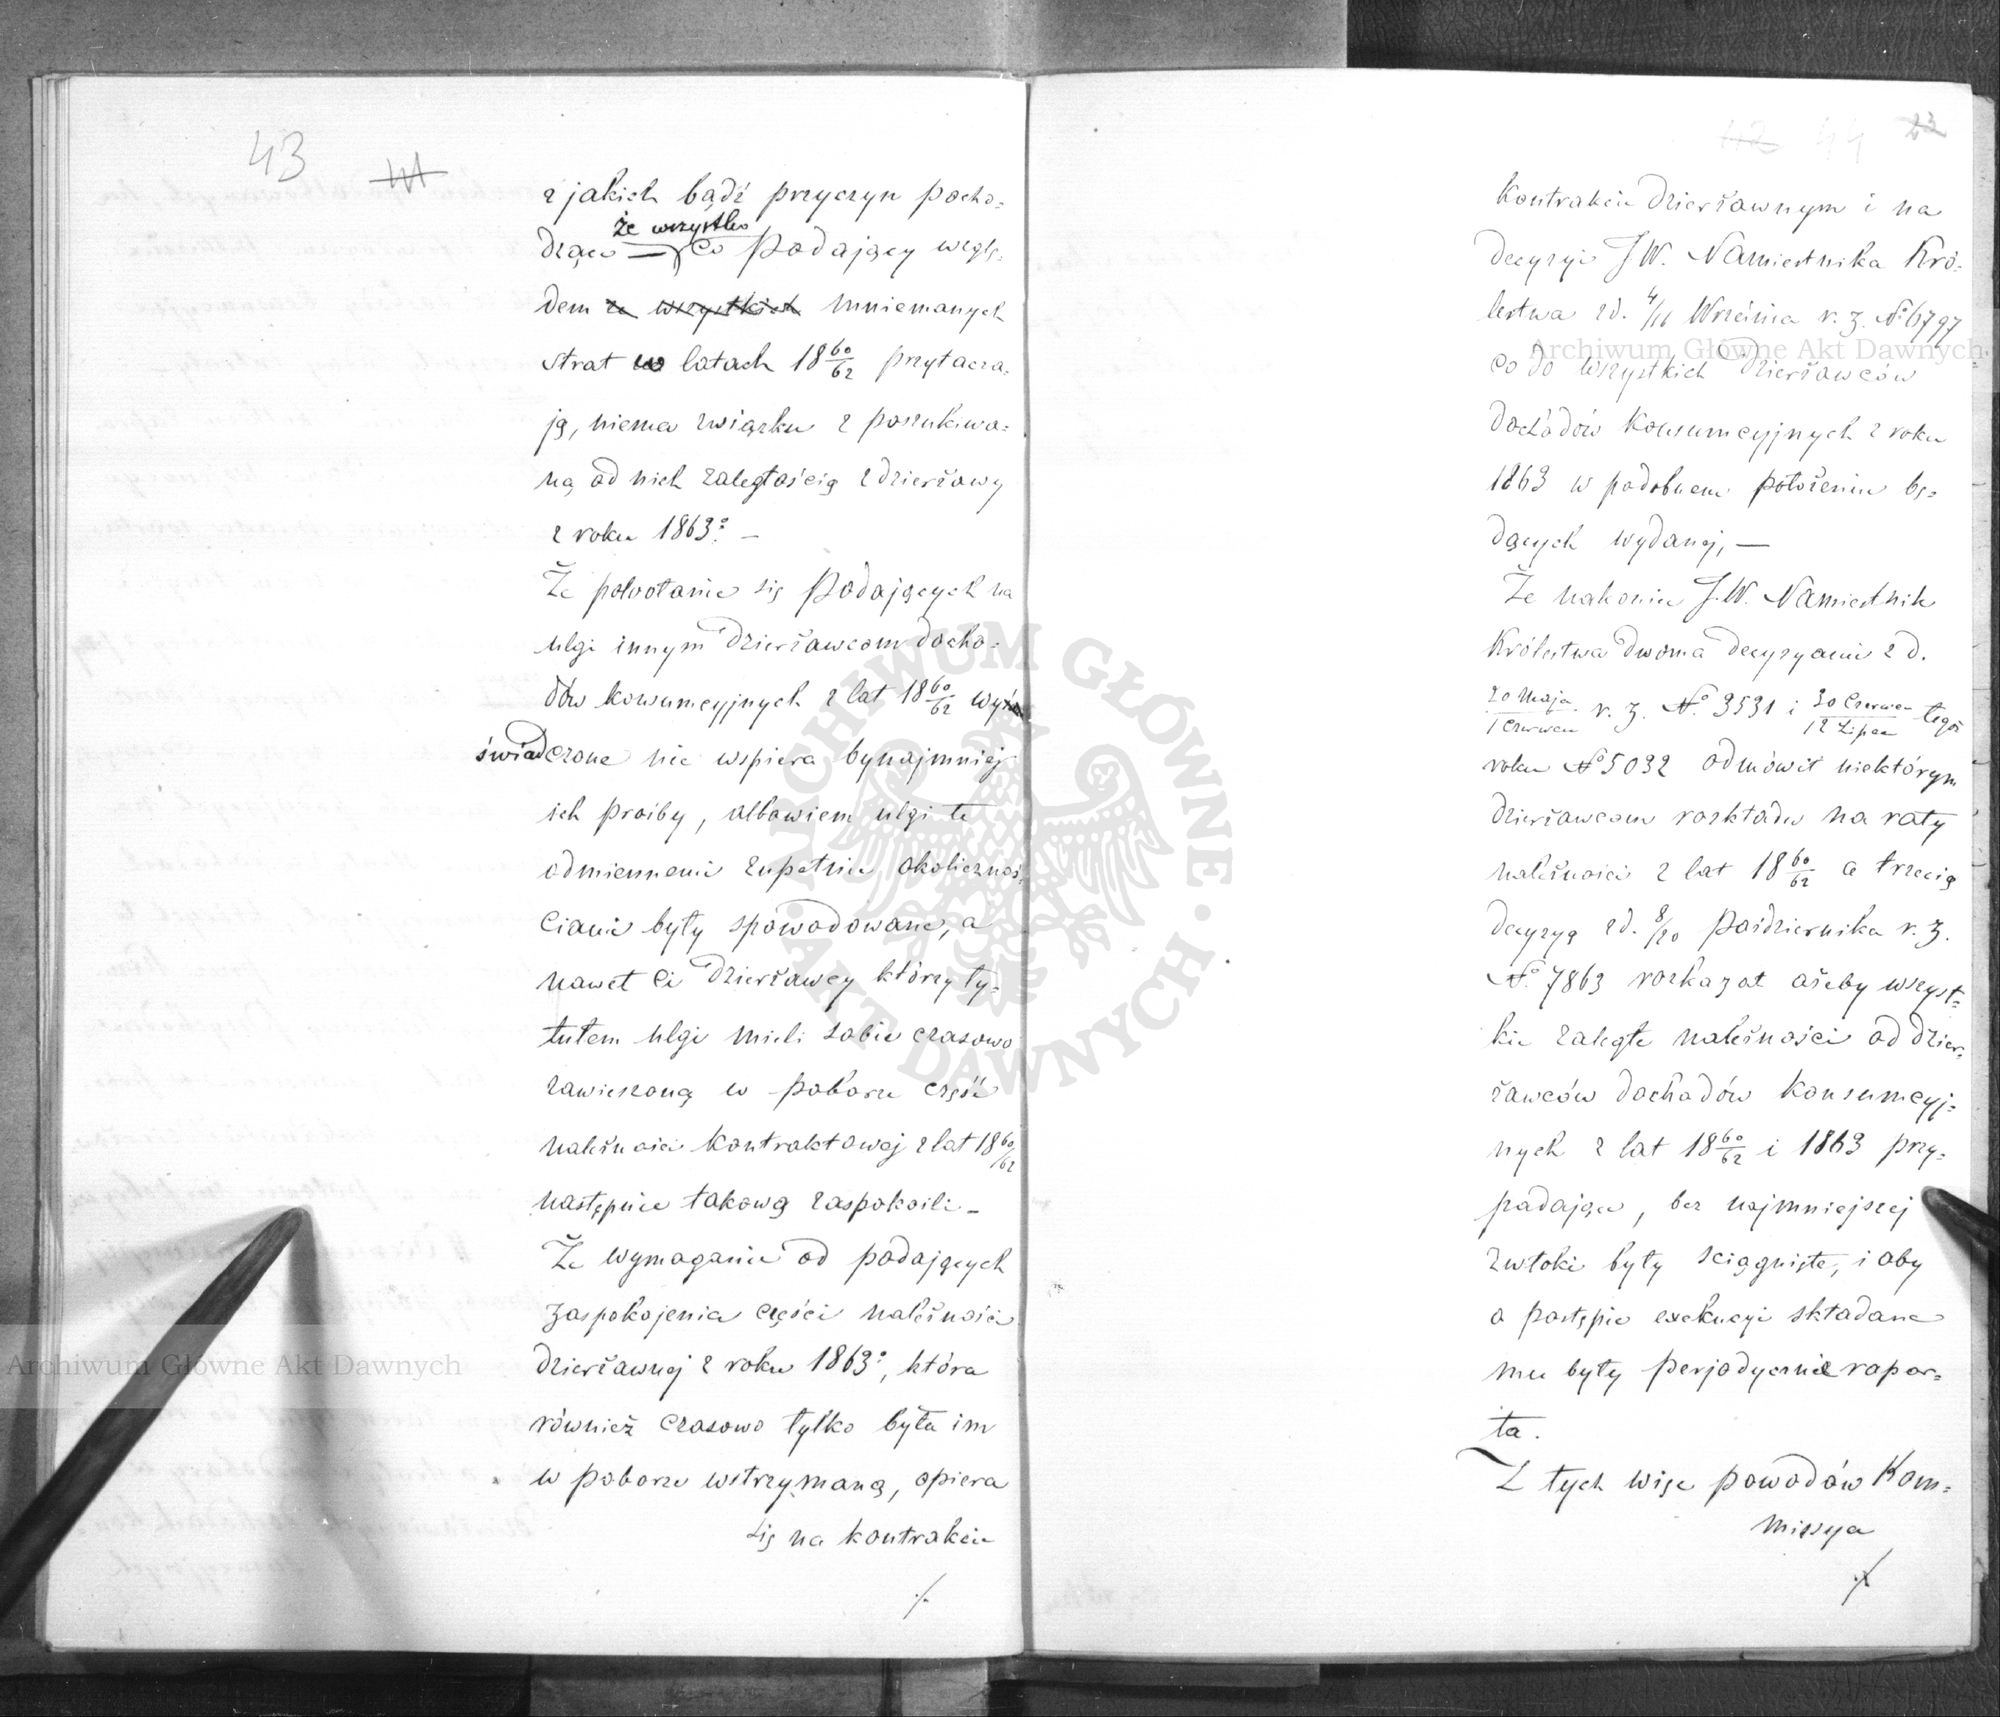 43 41
z jakich bądź przyczyn pocho=
że wszystko
dząca — co Podający wzglę=
dem ze wszystkich mniemanych
strat w latach 18 60/62 przytacza=
ją, niema związku z poszukiwa=
ną od nich zaległością z dzierżawy
z roku 1863º. —
Że powołanie się Podających na
ulgi innym Dzierżawcom docho=
dów konsumcyjnych z lat 18 60/62 wy
świadczone nie wspiera bynajmniej
ich prośby, albowiem ulgi te
odmiennemi zupełnie okolicznoś=
ciami były spowodowane, a
nawet Ci Dzierżawcy którzy ty=
tułem ulgi mieli sobie czasowo
zawieszoną w poborze część
należności kontraktowej z lat 18 60/62
następnie takową zaspokoili —
Że wymaganie od podających
zaspokojenia części należności
dzierżawnej z roku 1863º, która
również czasowo tylko była im
w poborze wstrzymaną, opiera
się na kontrakcie
./.
42 44 23
kontrakcie Dzierżawnym i na
decyzyi J.W. Namiestnika Kró=
lestwa z d. 4/16 Września r. z. Nº 6797
co do wszystkich Dzierżawców
dochodów Konsumcyjnych z roku
1863 w podobnem położeniu bę=
dących wydanej, —
Że nakoniec J.W. Namiestnik
Królestwa dwoma decyzyami z d.
20 Maja/1 Czerwca r. z. Nº 3531 i 30 Czerwca/12 Lipca tegoż
roku Nº 5032 odmówił niektórym
dzierżawcom rozkładu na raty
należności z lat 18 60/62 a trzecią
decyzyą z d. 8/20 Października r. z.
Nº 7863 rozkazał ażeby wszyst=
kie zaległe należności od dzier=
żawców dochodów Konsumcyj=
nych z lat 18 60/62 i 1863 przy=
padające, bez najmniejszej
zwłoki były ściągnięte, i aby
o postępie exekucyi składane
mu były perjodycznie rapor=
ta.
Z tych więc powodów Kom=
missya
./.
Archiwum Główne Akt Dawnych
Archiwum Główne Akt Dawnych
ARCHIWUM GŁÓWNE · AKT DAWNYCH ·